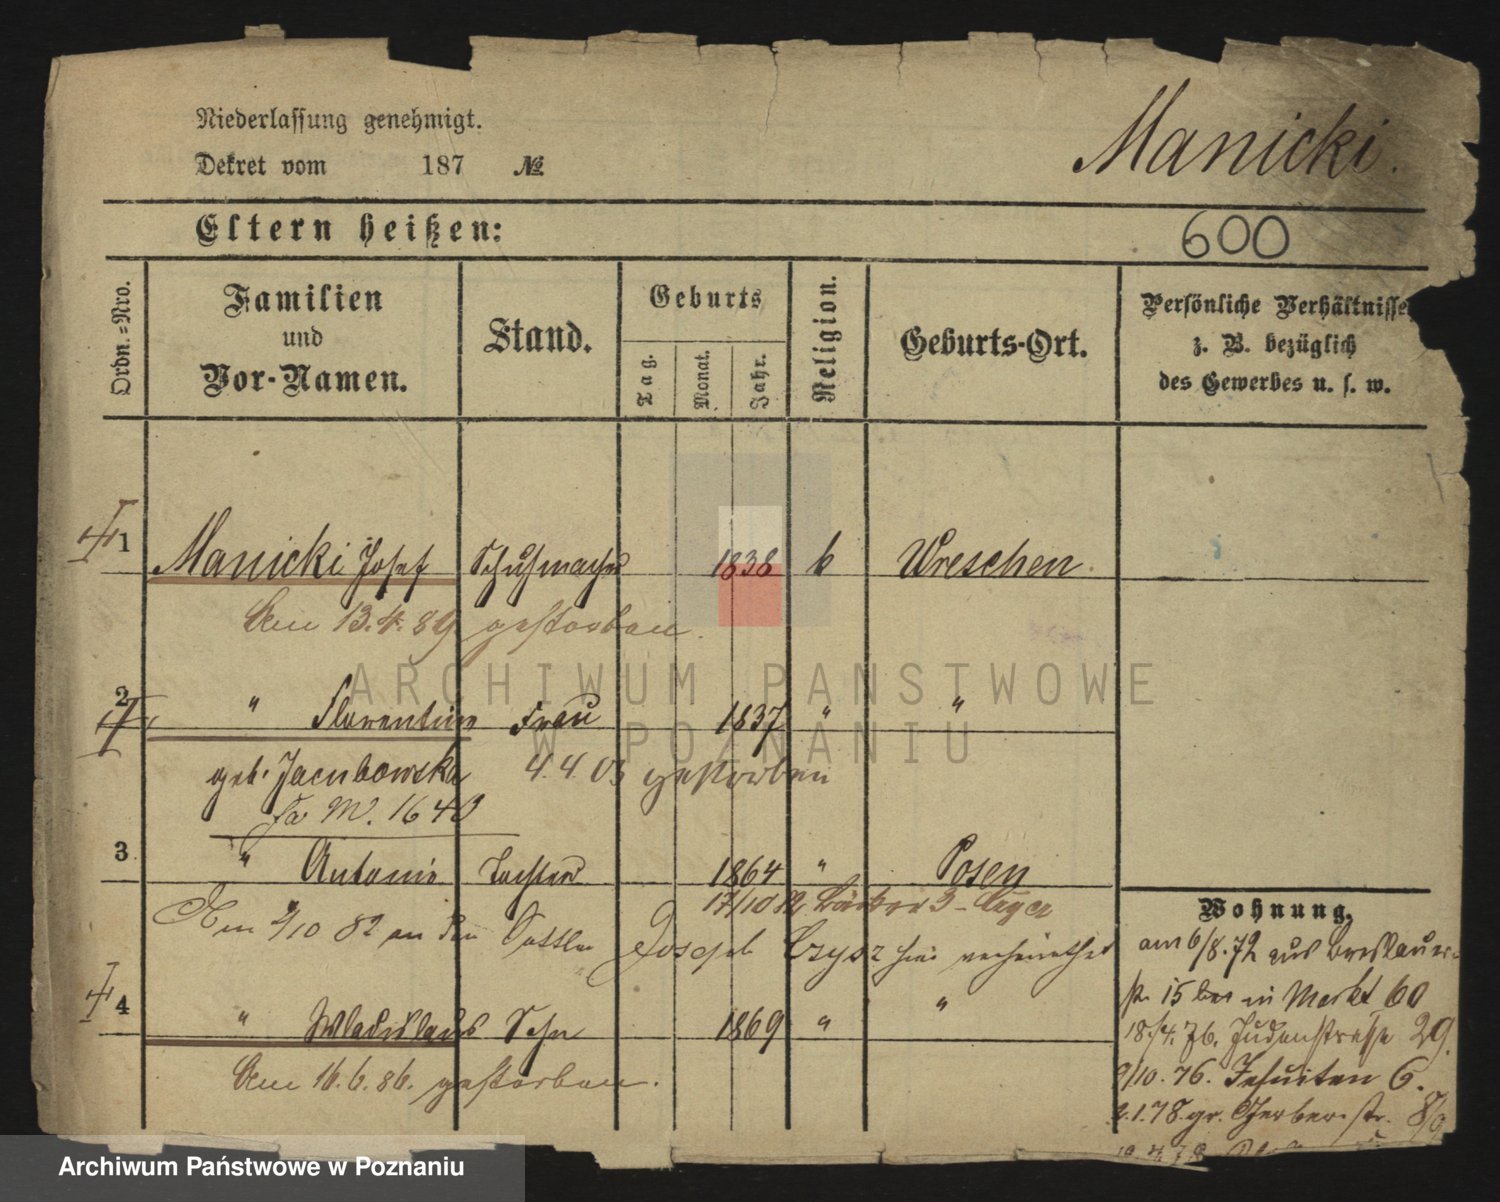 Niederlassung genehmigt.
Dekret vom 187 №
Manicki.
Eltern heißen:
600
Ordn.=Nro.
Familien
und
Vor-Namen.
Stand.
Geburts
Tag.
Monat.
Jahr.
Religion.
Geburts-Ort.
Persönliche Verhältnisse
z. B. bezüglich
des Gewerbes u. s. w.
1 Manicki Josef Schuhmacher 1838 k Wreschen.
Am 13.4.89 gestorben.
2 " Florentine Frau 1837 " "
geb. Jacubowska 4.4.03 gestorben
M. 1640
3 " Antonie Tochter 1864 " Posen
17/10
Am 2/10 82 an den Sattler Joseph Czysz hier verheirathet
4 " Wladislaus Sohn 1869 " "
Am 16.6.86. gestorben.
Wohnung.
am 6/8.72 aus Breslauer-
str. 15 in Markt 60
18./4.76. Judenstrasse 29.
9/10.76. Jesuiten 6.
2.1.78. gr. Gerberstr. 8/9
ARCHIWUM PAŃSTWOWE
W POZNANIU
Archiwum Państwowe w Poznaniu